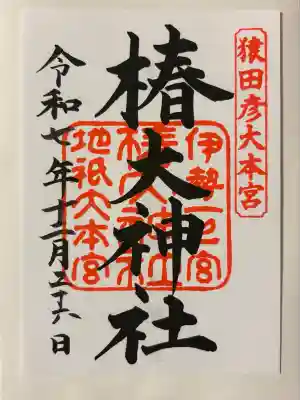 猿田彦大本宮
椿大神社
伊勢一之宮
地祇大本宮
令和七年十二月二十六日